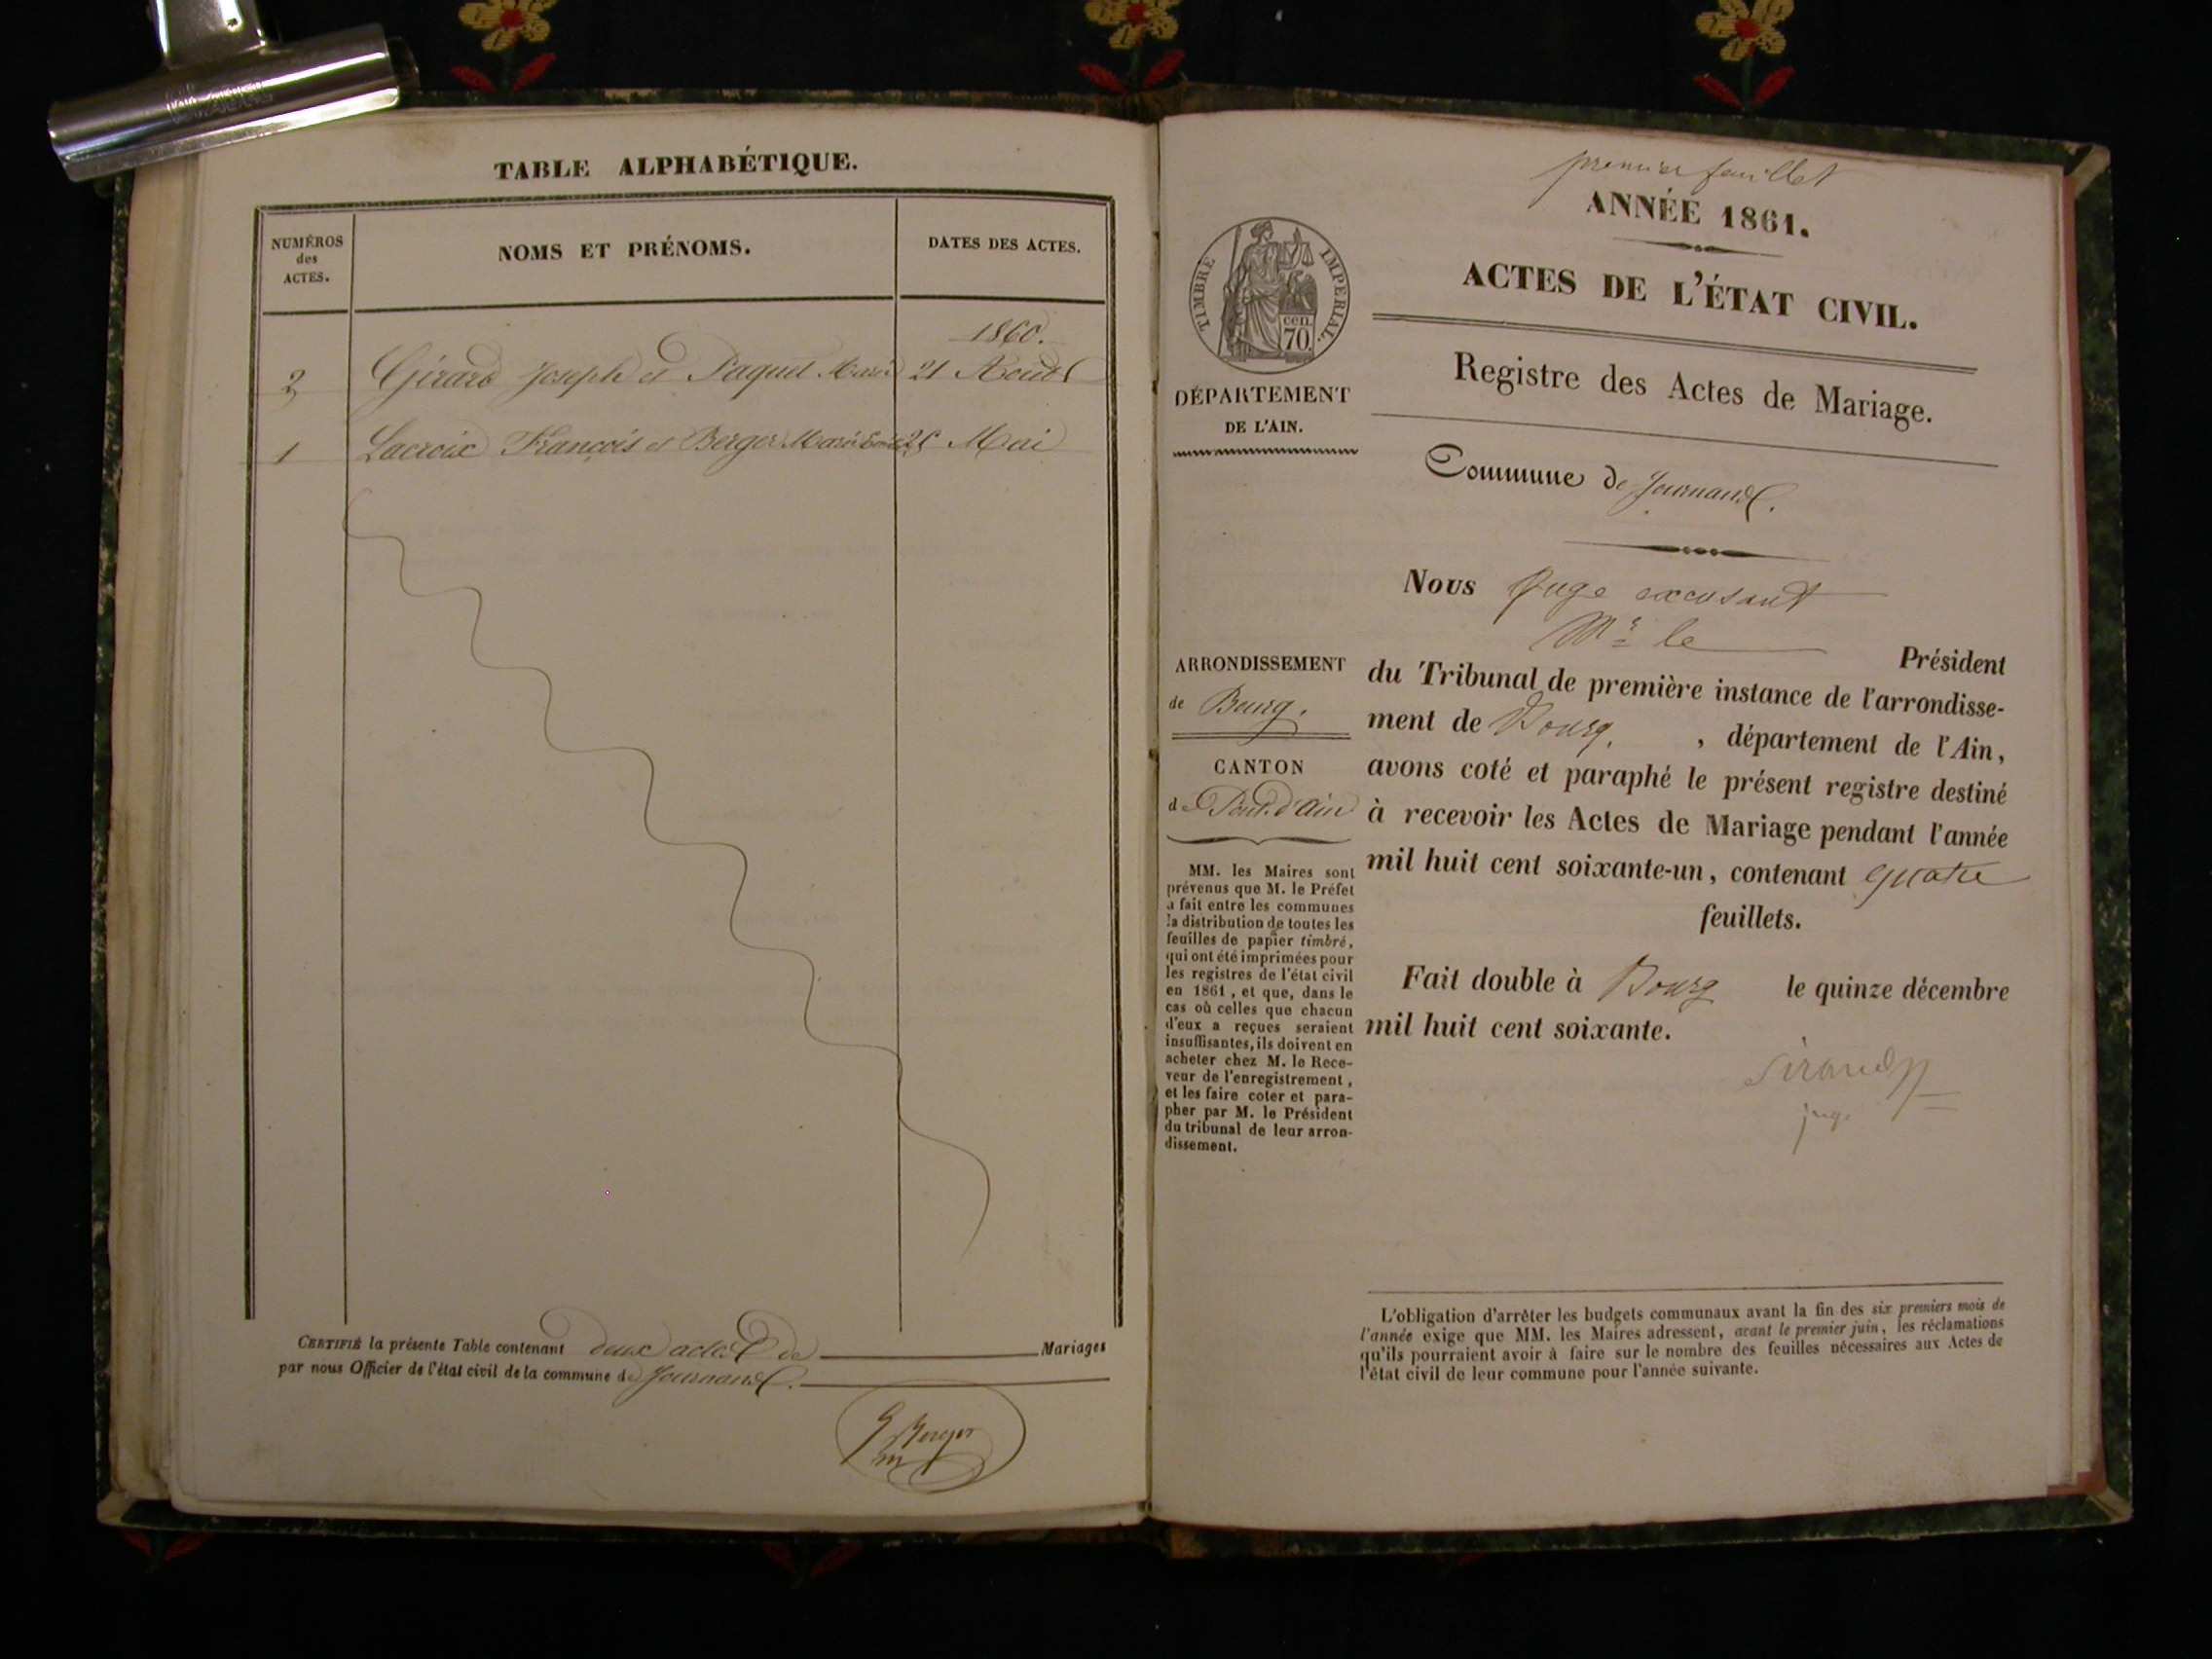 TABLE ALPHABÉTIQUE.
NUMÉROS
des
ACTES.
NOMS ET PRÉNOMS.
DATES DES ACTES.
1860.
2 Girard Joseph et Paquet Marie 21 Août
1 Lacroix François et Berger Marie Mai
CERTIFIÉ la présente Table contenant deux actes de Mariages
par nous Officier de l'état civil de la commune de Journans.
Berger
premier feuillet
ANNÉE 1861.
ACTES DE L'ÉTAT CIVIL.
TIMBRE IMPERIAL.
cen.
70.
DÉPARTEMENT
DE L'AIN.
Registre des Actes de Mariage.
Commune de Journans.
Nous Juge excusant
Mr le Président
du Tribunal de première instance de l'arrondisse-
ment de Bourg. , département de l'Ain,
avons coté et paraphé le présent registre destiné
à recevoir les Actes de Mariage pendant l'année
mil huit cent soixante-un, contenant quatre
feuillets.
Fait double à Bourg le quinze décembre
mil huit cent soixante.
Sirand
juge
ARRONDISSEMENT
de Bourg.
CANTON
de Pont-d'ain
MM. les Maires sont
prévenus que M. le Préfet
a fait entre les communes
la distribution de toutes les
feuilles de papier timbré,
qui ont été imprimées pour
les registres de l'état civil
en 1861, et que, dans le
cas où celles que chacun
d'eux a reçues seraient
insuffisantes, ils doivent en
acheter chez M. le Rece-
veur de l'enregistrement,
et les faire coter et para-
pher par M. le Président
du tribunal de leur arron-
dissement.
L'obligation d'arrêter les budgets communaux avant la fin des six premiers mois de
l'année exige que MM. les Maires adressent, avant le premier juin, les réclamations
qu'ils pourraient avoir à faire sur le nombre des feuilles nécessaires aux Actes de
l'état civil de leur commune pour l'année suivante.